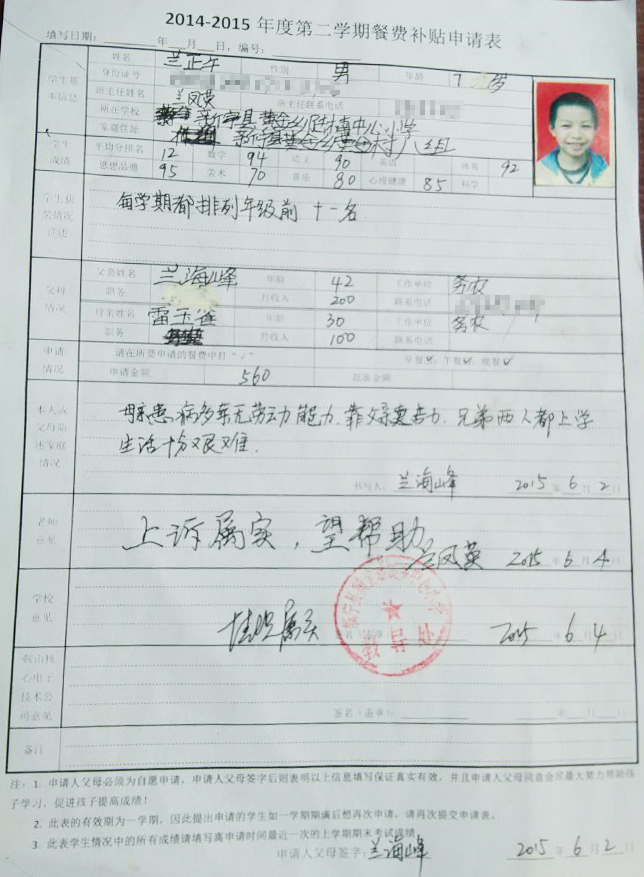 2014-2015 年度第二学期餐费补贴申请表
填写日期: 年 月 日, 编号:
学生基本信息
姓名 兰正午 性别 男 年龄 7 岁
身份证号
班主任姓名 兰凤英 班主任联系电话
所在学校 新宁县 中心小学
家庭住址 新宁县 村八组
学生成绩
平均分排名 12 数学 94 语文 90 英语 体育 92
思想品德 95 美术 70 音乐 80 心理健康 85 科学
学生获奖情况详述
每学期都排列年级前十一名
父母情况
父亲姓名 兰海峰 年龄 42 工作单位 务农
职务 月收入 200 联系电话
母亲姓名 雷玉雀 年龄 30 工作单位 务农
职务 月收入 100 联系电话
申请情况
请在所要申请的餐费中打“√” 早餐√, 午餐√, 晚餐√
申请金额 560 批准金额
本人或父母简述家庭情况
母亲患病多年无劳动能力.靠父亲卖苦力.兄弟两人都上学
生活十分艰难.
书写人: 兰海峰 2015 年 6 月 2 日
老师意见
上诉属实，望帮助
兰凤英 2015 年 6 月 4
学校意见
情况属实
教导处
2015 年 6 月 4
心电子技术公司意见
签名(盖章): 年 月 日
备注
注: 1. 申请人父母必须为自愿申请, 申请人父母签字后则表明以上信息填写保证真实有效, 并且申请人父母同意会尽最大努力帮助孩
子学习, 促进孩子提高成绩!
2. 此表的有效期为一学期, 因此提出申请的学生如一学期期满后想再次申请, 请再次提交申请表。
3. 此表学生情况中的所有成绩请填写离申请时间最近一次的上学期期末考试成绩。
申请人父母签字: 兰海峰 2015 年 6 月 2 日